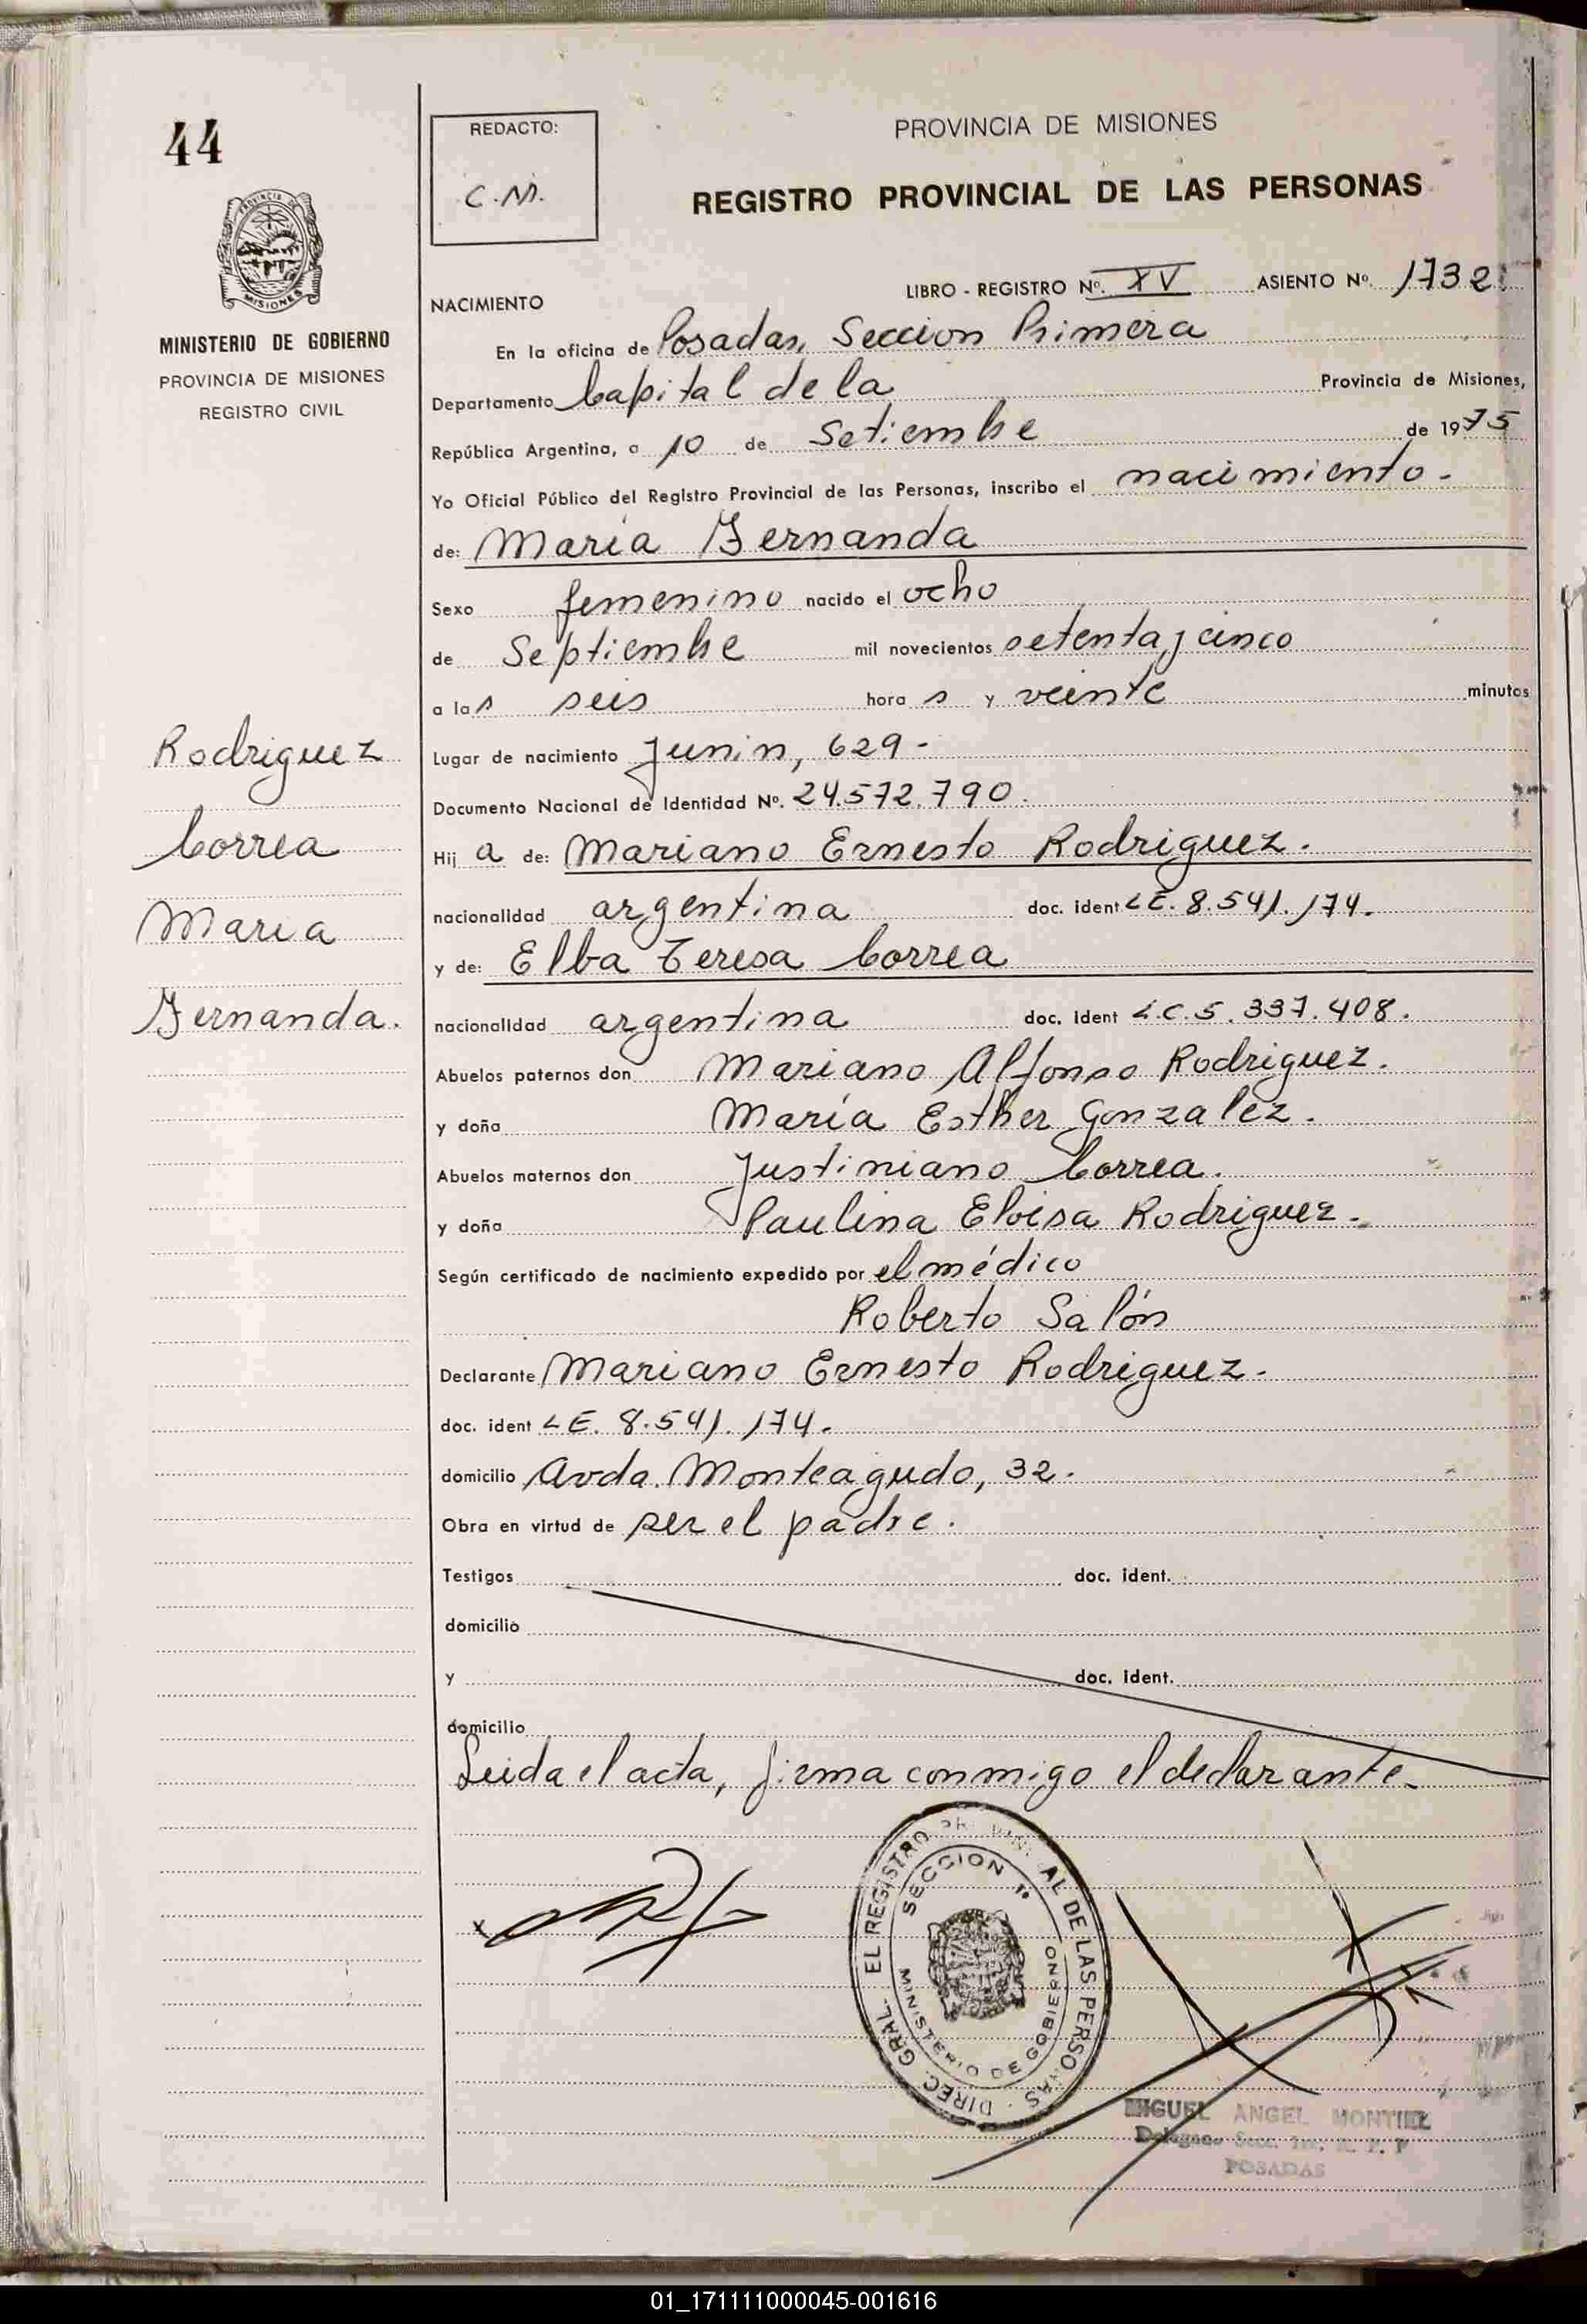 44
MINISTERIO DE GOBIERNO
PROVINCIA DE MISIONES
REGISTRO CIVIL
Rodriguez
Correa
Maria
Fernanda.
REDACTO:
C.M.
PROVINCIA DE MISIONES
REGISTRO PROVINCIAL DE LAS PERSONAS
LIBRO - REGISTRO Nº. XV ASIENTO Nº. 1732
NACIMIENTO
En la oficina de Posadas, Seccion Primera
Departamento Capital de la Provincia de Misiones,
República Argentina, a 10 de Setiembre de 1975
Yo Oficial Público del Registro Provincial de las Personas, inscribo el nacimiento.
de: María Fernanda
Sexo femenino nacido el ocho
de Septiembre mil novecientos setenta y cinco
a las seis horas y veinte minutos
Lugar de nacimiento Junin, 629-
Documento Nacional de Identidad Nº. 24.572.790.
Hija de: Mariano Ernesto Rodriguez.
nacionalidad argentina doc. ident LE. 8.541.174.
y de: Elba Teresa Correa
nacionalidad argentina doc. ident L.C. 5.337.408.
Abuelos paternos don Mariano Alfonso Rodriguez.
y doña María Esther Gonzalez.
Abuelos maternos don Justiniano Correa.
y doña Paulina Eloisa Rodriguez.
Según certificado de nacimiento expedido por el médico
Roberto Salón
Declarante Mariano Ernesto Rodriguez.
doc. ident LE. 8.541.174.
domicilio Avda. Monteagudo, 32.
Obra en virtud de ser el padre.
Testigos doc. ident.
domicilio
y doc. ident.
domicilio
Leida el acta, firma conmigo el declarante.
DIREC. GRAL. EL REGISTRO DE LAS PERSONAS
SECCION 1ª
MINISTERIO DE GOBIERNO
MIGUEL ANGEL MONTIEL
POSADAS
01_171111000045-001616